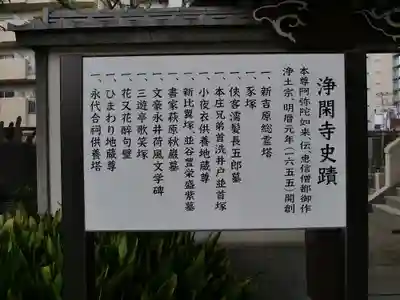 浄閑寺史蹟
本尊阿弥陀如来(伝)恵信僧都御作
浄土宗、明暦元年(一六五五)開創
一、新吉原総霊塔
一、豕塚
一、侠客濡髪長五郎墓
一、本庄兄弟首洗井戸並首塚
一、小夜衣供養地蔵尊
一、新比翼塚、並谷豊栄盛紫墓
一、書家萩原秋巌墓
一、文豪永井荷風文学碑
一、三遊亭歌笑塚
一、花又花酔句壁
一、ひまわり地蔵尊
一、永代合祠供養塔